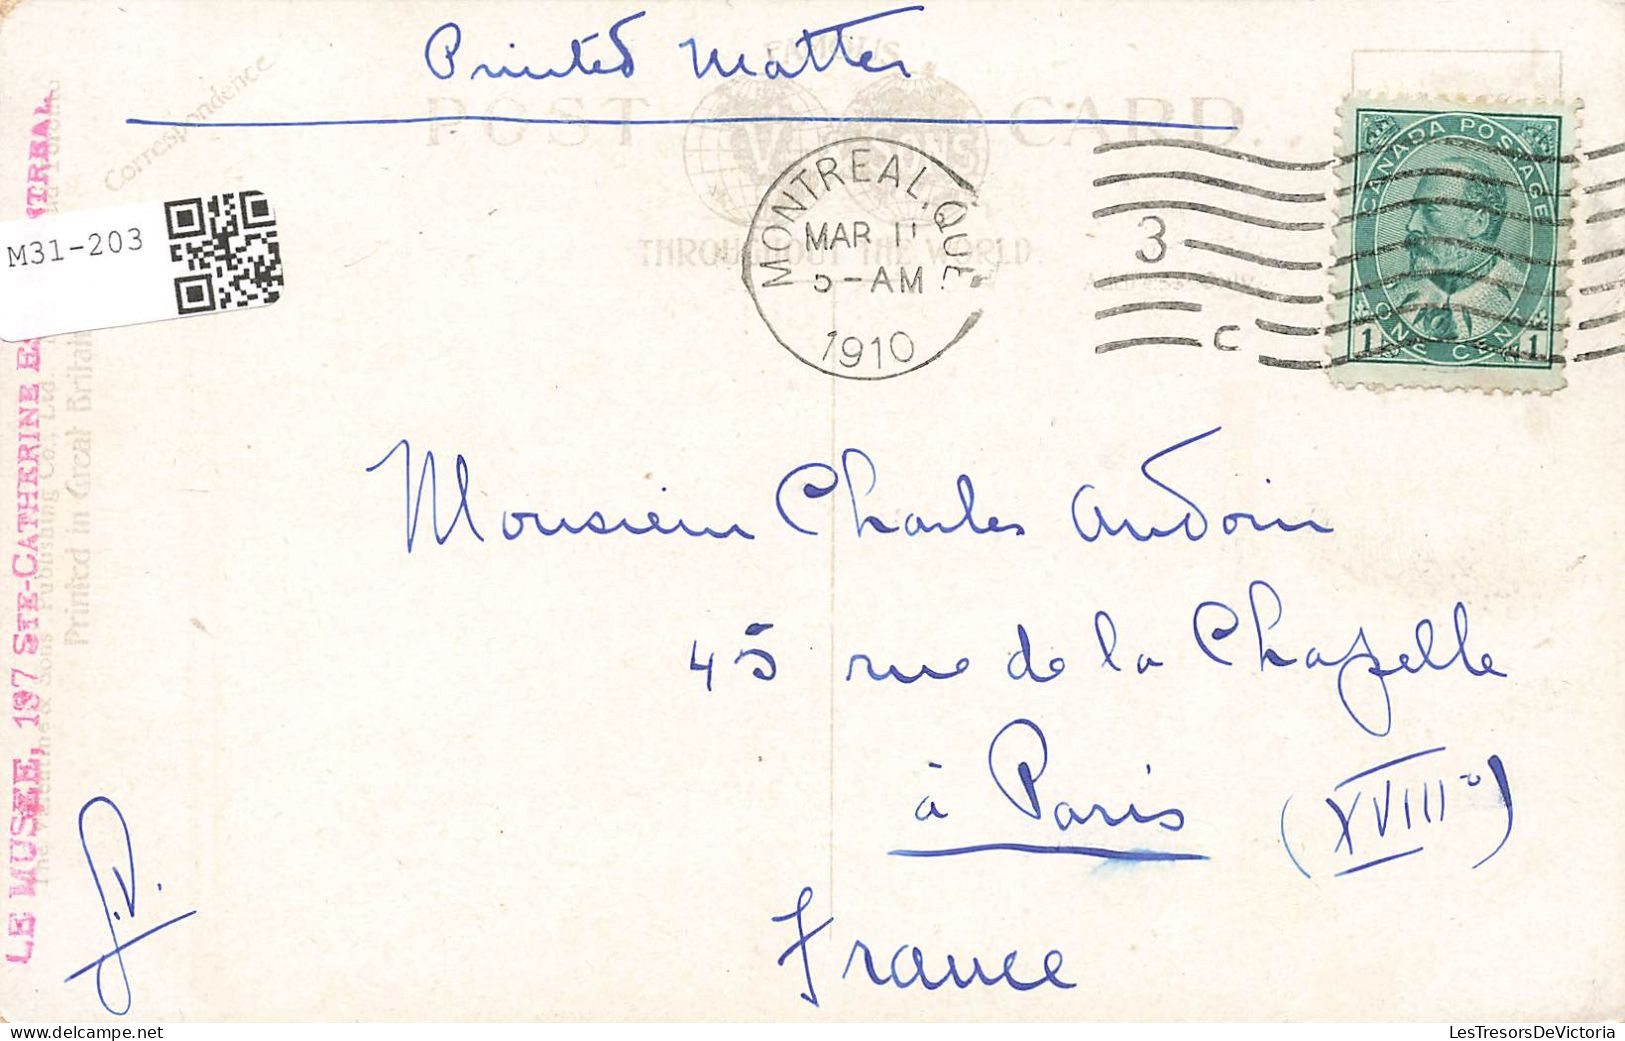 Printed Matter
FAMOUS
POST CARD.
THROUGHOUT THE WORLD
Correspondence
MONTREAL, QUE
MAR 11
5-AM
1910
3
C
CANADA POSTAGE
1 ONE CENT 1
M31-203
LE MUSEE, 197 STE-CATHERINE
Valentine & Sons Publishing Co., Ltd
Printed in Great Britain
Monsieur Charles Audoin
45 rue de la Chapelle
à Paris (XVIIIe)
France
J.V.
LesTresorsDeVictoria